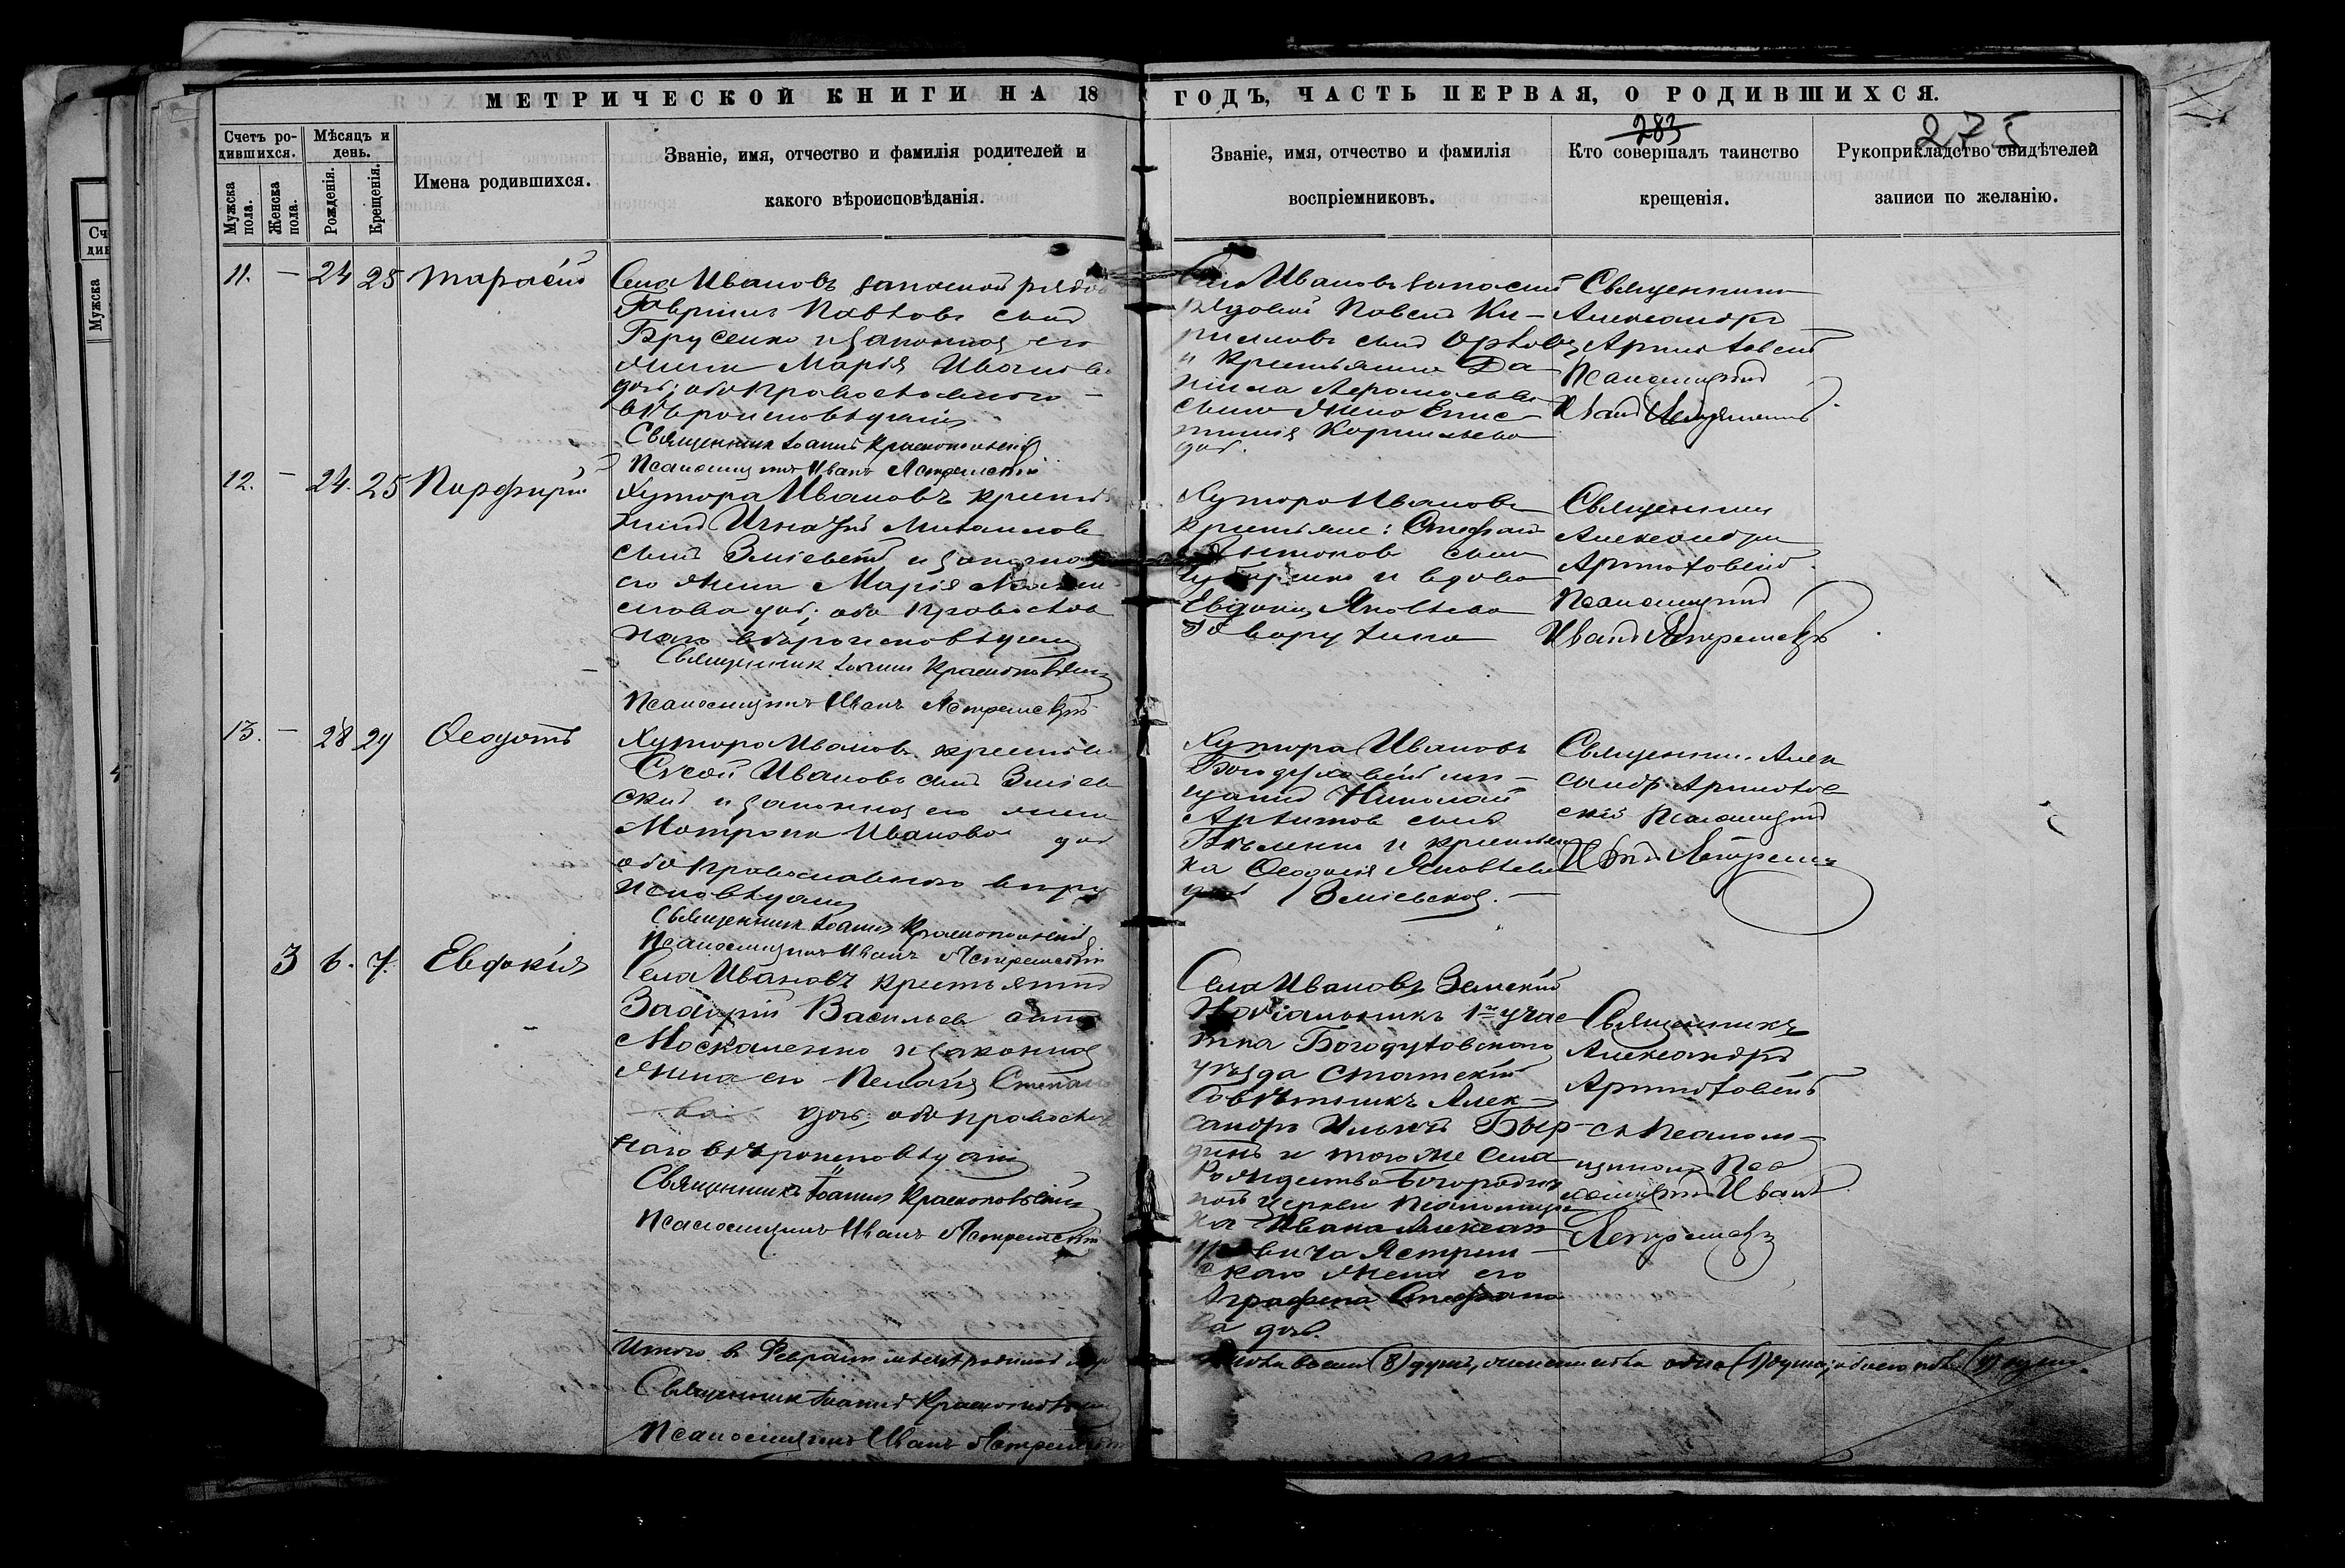 МЕТРИЧЕСКОЙ КНИГИ НА 18
ГОДЪ, ЧАСТЬ ПЕРВАЯ, О РОДИВШИХСЯ.
283
275
Счетъ ро-
дившихся.
Мѣсяцъ и
день.
Мужска
пола.
Женска
пола.
Рожденія.
Крещенія.
Имена родившихся.
Званіе, имя, отчество и фамилія родителей и
какого вѣроисповѣданія.
Званіе, имя, отчество и фамилія
воспріемниковъ.
Кто совершалъ таинство
крещенія.
Рукоприкладство свидѣтелей
записи по желанію.
11. — 24 25 Тарасій
Села Ивановъ запасной рядов
Гавріилъ Павловъ сынъ
Брусенко и законная его
жена Марія Иванова
дочь; оба православнаго
вѣроисповѣданія
Священникъ Іоаннъ Краснопольскій
Псаломщикъ Иванъ Ястремскій
Села Ивановъ запасный
рядовой Павелъ Ки-
риловъ сынъ Орловъ
и крестьянина Да-
ніила
сына жена
Корнильева
доч.
Священникъ
Александръ
Псаломщикъ
Иванъ Ястремскій
12. — 24. 25 Порфирій
Хутора Ивановъ крестья
нинъ Игнатій Михаиловъ
сынъ Зміевскій и законная
его жена Марія
дочь; оба православ
наго вѣроисповѣданія
Священникъ Іоаннъ Краснопольскій
Псаломщикъ Иванъ Ястремскій
Хутора Ивановъ
крестьяне: Стефанъ
сынъ
и вдова
Евдокія Яковлева
Священникъ
Александръ
Псаломщикъ
Иванъ Ястремскій
13. — 28 29 Ѳеодотъ
Хутора Ивановъ крестьян
Ивановъ сынъ Зміев
скій и законная его жена
Матрона Иванова дочь
оба православнаго вѣро
исповѣданія
Священникъ Іоаннъ Краснопольскій
Псаломщикъ Иванъ Ястремскій
Хутора Ивановъ
Богодуховскій мѣ-
щанинъ Николай
сынъ
и крестьян
ка Ѳеодосія Яковлева
дочь Зміевская. —
Священникъ Алек
сандръ
скій Псаломщикъ
Иванъ Ястремскій
3 6. 7. Евдокія
Села Ивановъ крестьянинъ
Захарій Васильевъ сынъ
Москаленко и законная
жена его Пелагія Степано
ва дочь; оба православ
наго вѣроисповѣданія
Священникъ Іоаннъ Краснопольскій
Псаломщикъ Иванъ Ястремскій
Села Ивановъ Земскій
Начальникъ 1го учас
тка Богодуховскаго
уѣзда Статскій
Совѣтникъ Алек-
сандръ Ильичъ Быр-
динъ и того же села
Рождество Богородич
ной церкви псаломщи
ка Ивана Алексан
дровича Ястрем-
скаго жена его
Аграфена Стефано
ва доч.
Священникъ
Александръ
съ псалом-
щикомъ Пса
ломщикъ Иванъ
Ястремскій
Итого въ Февралѣ мѣсяцѣ родилось муж
пола восемь (8) душъ, женска пола одна (1) душа, обоего пола (9) душъ.
Священникъ Іоаннъ Краснопольскій
Псаломщикъ Иванъ Ястремскій
Сч
див
Мужска